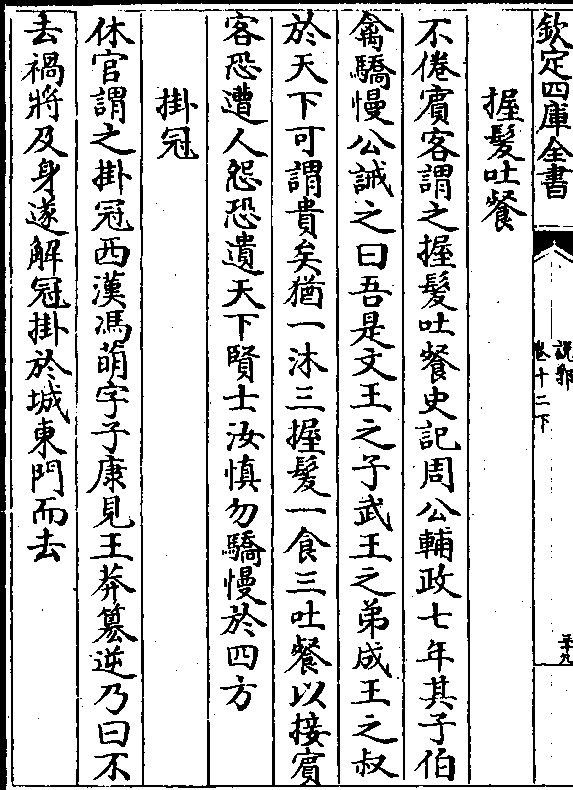 欽定四庫全書
說郛
卷十二下
三十九
握髮吐餐
不倦賓客謂之握髮吐餐史記周公輔政七年其子伯
禽驕慢公誡之曰吾是文王之子武王之弟成王之叔
於天下可謂貴矣猶一沐三握髮一食三吐餐以接賓
客恐遭人怨恐遺天下賢士汝慎勿驕慢於四方
掛冠
休官謂之掛冠西漢馮萌字子康見王莽篡逆乃曰不
去禍將及身遂解冠掛於城東門而去